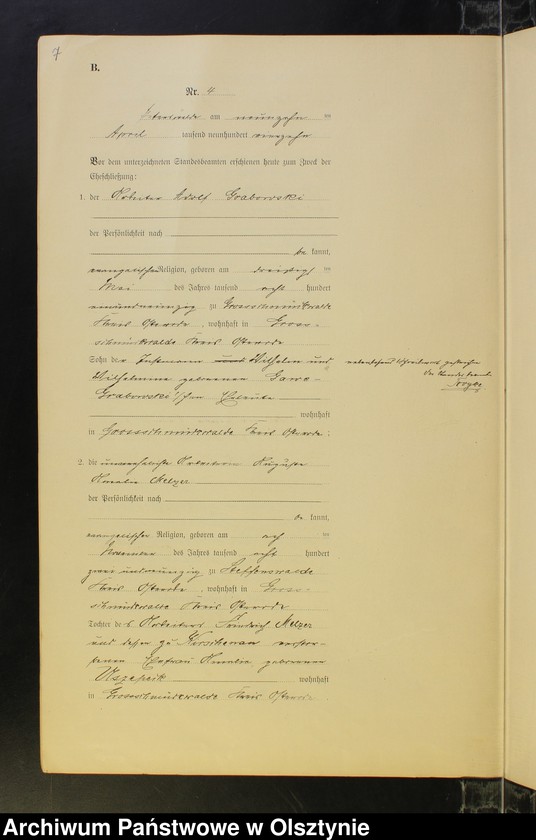 7
B.
Nr. 4
am neunzehn ten
April tausend neunhundert vierzehn
Vor dem unterzeichneten Standesbeamten erschienen heute zum Zweck der
Eheschließung:
1. der Arbeiter Adolf Grabowski
der Persönlichkeit nach
be kannt,
evangelischer Religion, geboren am dreißigsten
Mai des Jahres tausend acht hundert
einundneunzig zu Grossschmückwalde
Kreis Osterode, wohnhaft in Gross-
schmückwalde Kreis Osterode
Sohn der Instmann Wilhelm und
Wilhelmine geborenen
Grabowski'schen Eheleute
wohnhaft
in Grossschmückwalde Kreis Osterode;
nebenstehend gestrichen
Der Standesbeamte
2. die unverehelichte Arbeiterin Auguste
Amalie Melzer
der Persönlichkeit nach
be kannt,
evangelischer Religion, geboren am ten
November des Jahres tausend acht hundert
zweiundneunzig zu Steffenswalde
Kreis Osterode, wohnhaft in Gross-
schmückwalde Kreis Osterode
Tochter des Arbeiters Friedrich Melzer
und dessen zu verstor-
benen Ehefrau Amalie geborenen
wohnhaft
in Grossschmückwalde Kreis Osterode.
Archiwum Państwowe w Olsztynie